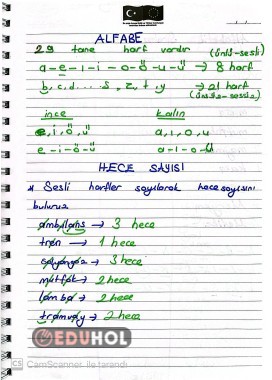 ALFABE
29 tane harf vardır
(ünlü-sesli)
a-e-ı-i-o-ö-u-ü → 8 harf
b, c, d.... s, z, t, y → 21 harf
ince kalın
e, i, ö, ü a, ı, o, u
e-i-ö-ü a-ı-o-u
HECE SAYISI
* Sesli harfler sayılarak hece sayısını
buluruz
ambulans → 3 hece
tren → 1 hece
salyangoz → 3 hece
mutfak → 2 hece
lamba → 2 hece
tramvay → 2 hece
EDUHOL
CS CamScanner ile tarandı